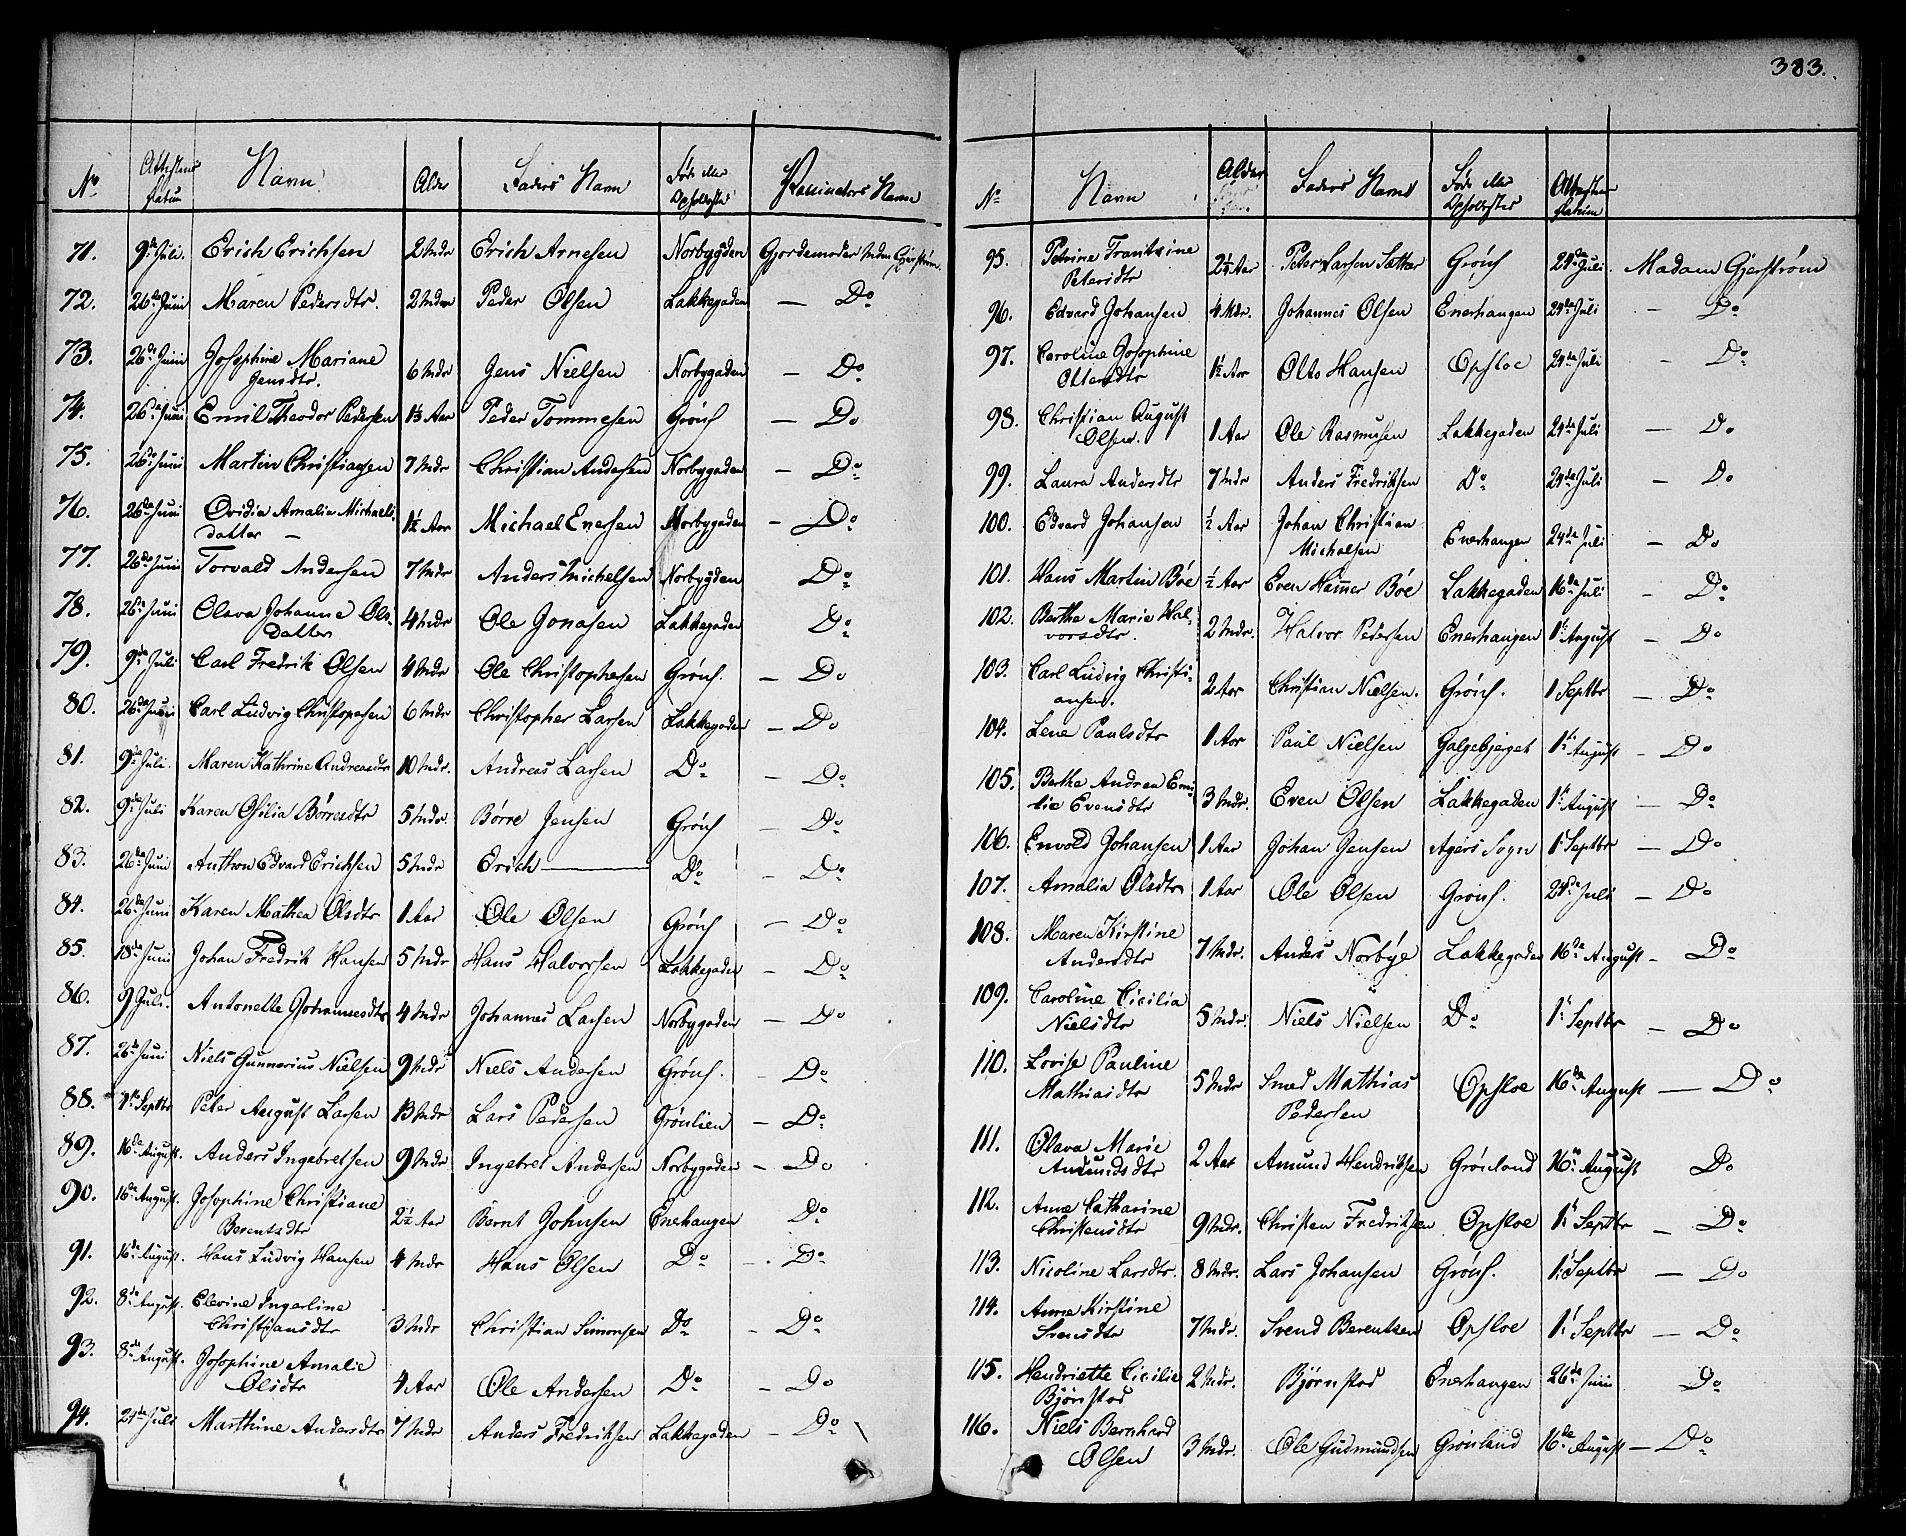 383.
No Attestens Datum Navn Alder Faders Navn Føde eller Opholdssted Vaccinators Navn
71. 9de Juli. Erich Erichsen 2 Mdr Erich Arnesen Norbygden Gjordemoder Mdm Gjerstrøm.
72. 26de Juni Maren Pedersdtr. 2 Mdr Peder Olsen Lakkegaden — Do
73. 26de Juni Josephine Mariane
Jensdtr. 6 Mdr Jens Nielsen Norbygaden — Do
74. 26de Juni Emil Theodor Pedersen 1½ Aar Peder Tommesen Grönl — Do
75. 26de Juni Martin Christiansen 7 Mdr Christian Andersen Norbygaden — Do
76. 26de Juni Ovidia Amalia Michaels
datter — 1½ Aar Michael Enersen Norbygaden — Do
77. 26de Juni Torvald Andersen 7 Mdr Anders Michelsen Norbygden Do
78. 26de Juni Olava Johanne Ols-
datter 4 Mdr Ole Jonasen Lakkegaden Do
79. 9de Juli Carl Fredrik Olsen 4 Mdr Ole Christophersen Grönl. — Do
80. 26de Juni Carl Ludvig Christopesen 6 Mdr Christopher Larsen Lakkegaden — Do
81. 9de Juli. Maren Kathrine Andreasdtr 10 Mdr. Andreas Larsen Do — Do
82. 9de Juli Karen Osilia Børresdtr 5 Mdr. Børre Jensen Grönl — Do
83. 26de Juni Anthon Edvard Erichsen 5 Mdr Erich —— Do — Do
84. 26de Juni Karen Mathea Olsdtr 1 Aar Ole Olsen Grönl — Do
85. 18de Juni Johan Fredrik Hansen 5 Mdr Hans Halvorsen Lakkegaden — Do
86. 9 Juli. Antonette Johannesdtr 4 Mdr Johannes Larsen Norbygaden — Do
87. 26de Juni Niels Gunnerius Nielsen 9 Mdr Niels Andersen Grönl. — Do
88. 1ste Septbr Peter August Larsen 13 Mdr Lars Pedersen Grönlien — Do
89. 16de August. Anders Ingebretsen 9 Mdr Ingebret Andersen Norbygaden — Do
90. 16de August. Josephine Christiane
Berentsdtr 2½ Aar Bernt Johnsen Enerhaugen Do
91. 16de August. Hans Ludvig Hansen 4 Mdr Hans Olsen Do — Do
92. 8de August. Elevine Ingerline
Christiansdtr 3 Mdr Christian Simonsen Do — Do
93. 8de August. Josophine Amalie
Olsdtr 4 Aar Ole Andersen Do — Do
94. 24de Juli Marthine Andersdtr 7 Mdr Anders Fredriksen Lakkegaden — Do
No Navn Alder Faders Navn Føde eller Opholdssted Attestens Datum
95. Petrine Trantzine
Petersdtr 2¼ Aar Peter Larsen Sætter Grönl 24de Juli Madam Gjerstrøm
96. Edvard Johansen 4 Mdr. Johannes Olsen Enerhaugen 24de Juli — Do
97. Caroline Josophine
Ottersdtr 1½ Aar Otto Hansen Opsloe 24de Juli — Do
98. Christian August
Olsen. 1 Aar Ole Rasmusen Lakkegaden 24de Juli — Do
99. Laura Andersdtr 7 Mdr Anders Fredriksen Do 24de Juli — Do
100. Edvard Johansen ½ Aar Johan Christian
Michelsen Enerhaugen 24de Juli — Do
101. Hans Martin Böe ½ Aar Even Hammer Böe Lakkegaden 16de Juli — Do
102. Berthe Marie Hal-
vorsdtr. 2 Mdr. Halvor Pedersen Enerhaugen 1ste August — Do
103. Carl Ludvig Christi-
ansen. 2 Aar Christian Nielsen. Grönl. 1 Septbr — Do
104. Lene Paulsdtr 1 Aar Paul Nielsen Galgebjerget 1ste August — Do
105. Berthe Andrea Emi-
lie Evensdtr 3 Mdr. Even Olsen Lakkegaden 1ste August — Do
106. Envold Johansen 1 Aar Johan Jensen Agers Sogn 1ste Septbr — Do
107. Amalia Olsdtr 1 Aar Ole Olsen Grönl. 24de Juli — Do
108. Maren Kirstine
Andersdtr 7 Mdr. Anders Norbye Lakkegaden 16de August — Do
109. Caroline Cicilia
Nielsdtr 5 Mdr. Niels Nielsen Do 1ste Septbr — Do
110. Lovise Pauline
Mathiasdtr 5 Mdr Smed Mathias
Pedersen Opsloe 16de August — Do
111. Olava Marie
Amundsdtr 2 Aar Amund Hendriksen Grönland 16de August Do
112. Anne Catharine
Christensdtr 9 Mdr. Christen Fredriksen Opsloe 1ste Septbr — Do
113. Nicoline Larsdtr. 8 Mdr. Lars Johansen Grönl. 1ste Septbr — Do
114. Anne Kirstine
Svensdtr 7 Mdr. Svend Berentsen Opsloe 1ste Septbr — Do
115. Hendriette Cicilie
Bjørnstad 2 Mdr. Bjørnstad Enerhaugen 26de Juni Do
116. Niels Bernhard
Olsen 3 Mdr. Ole Gudmundsen Grönland 16de August — Do